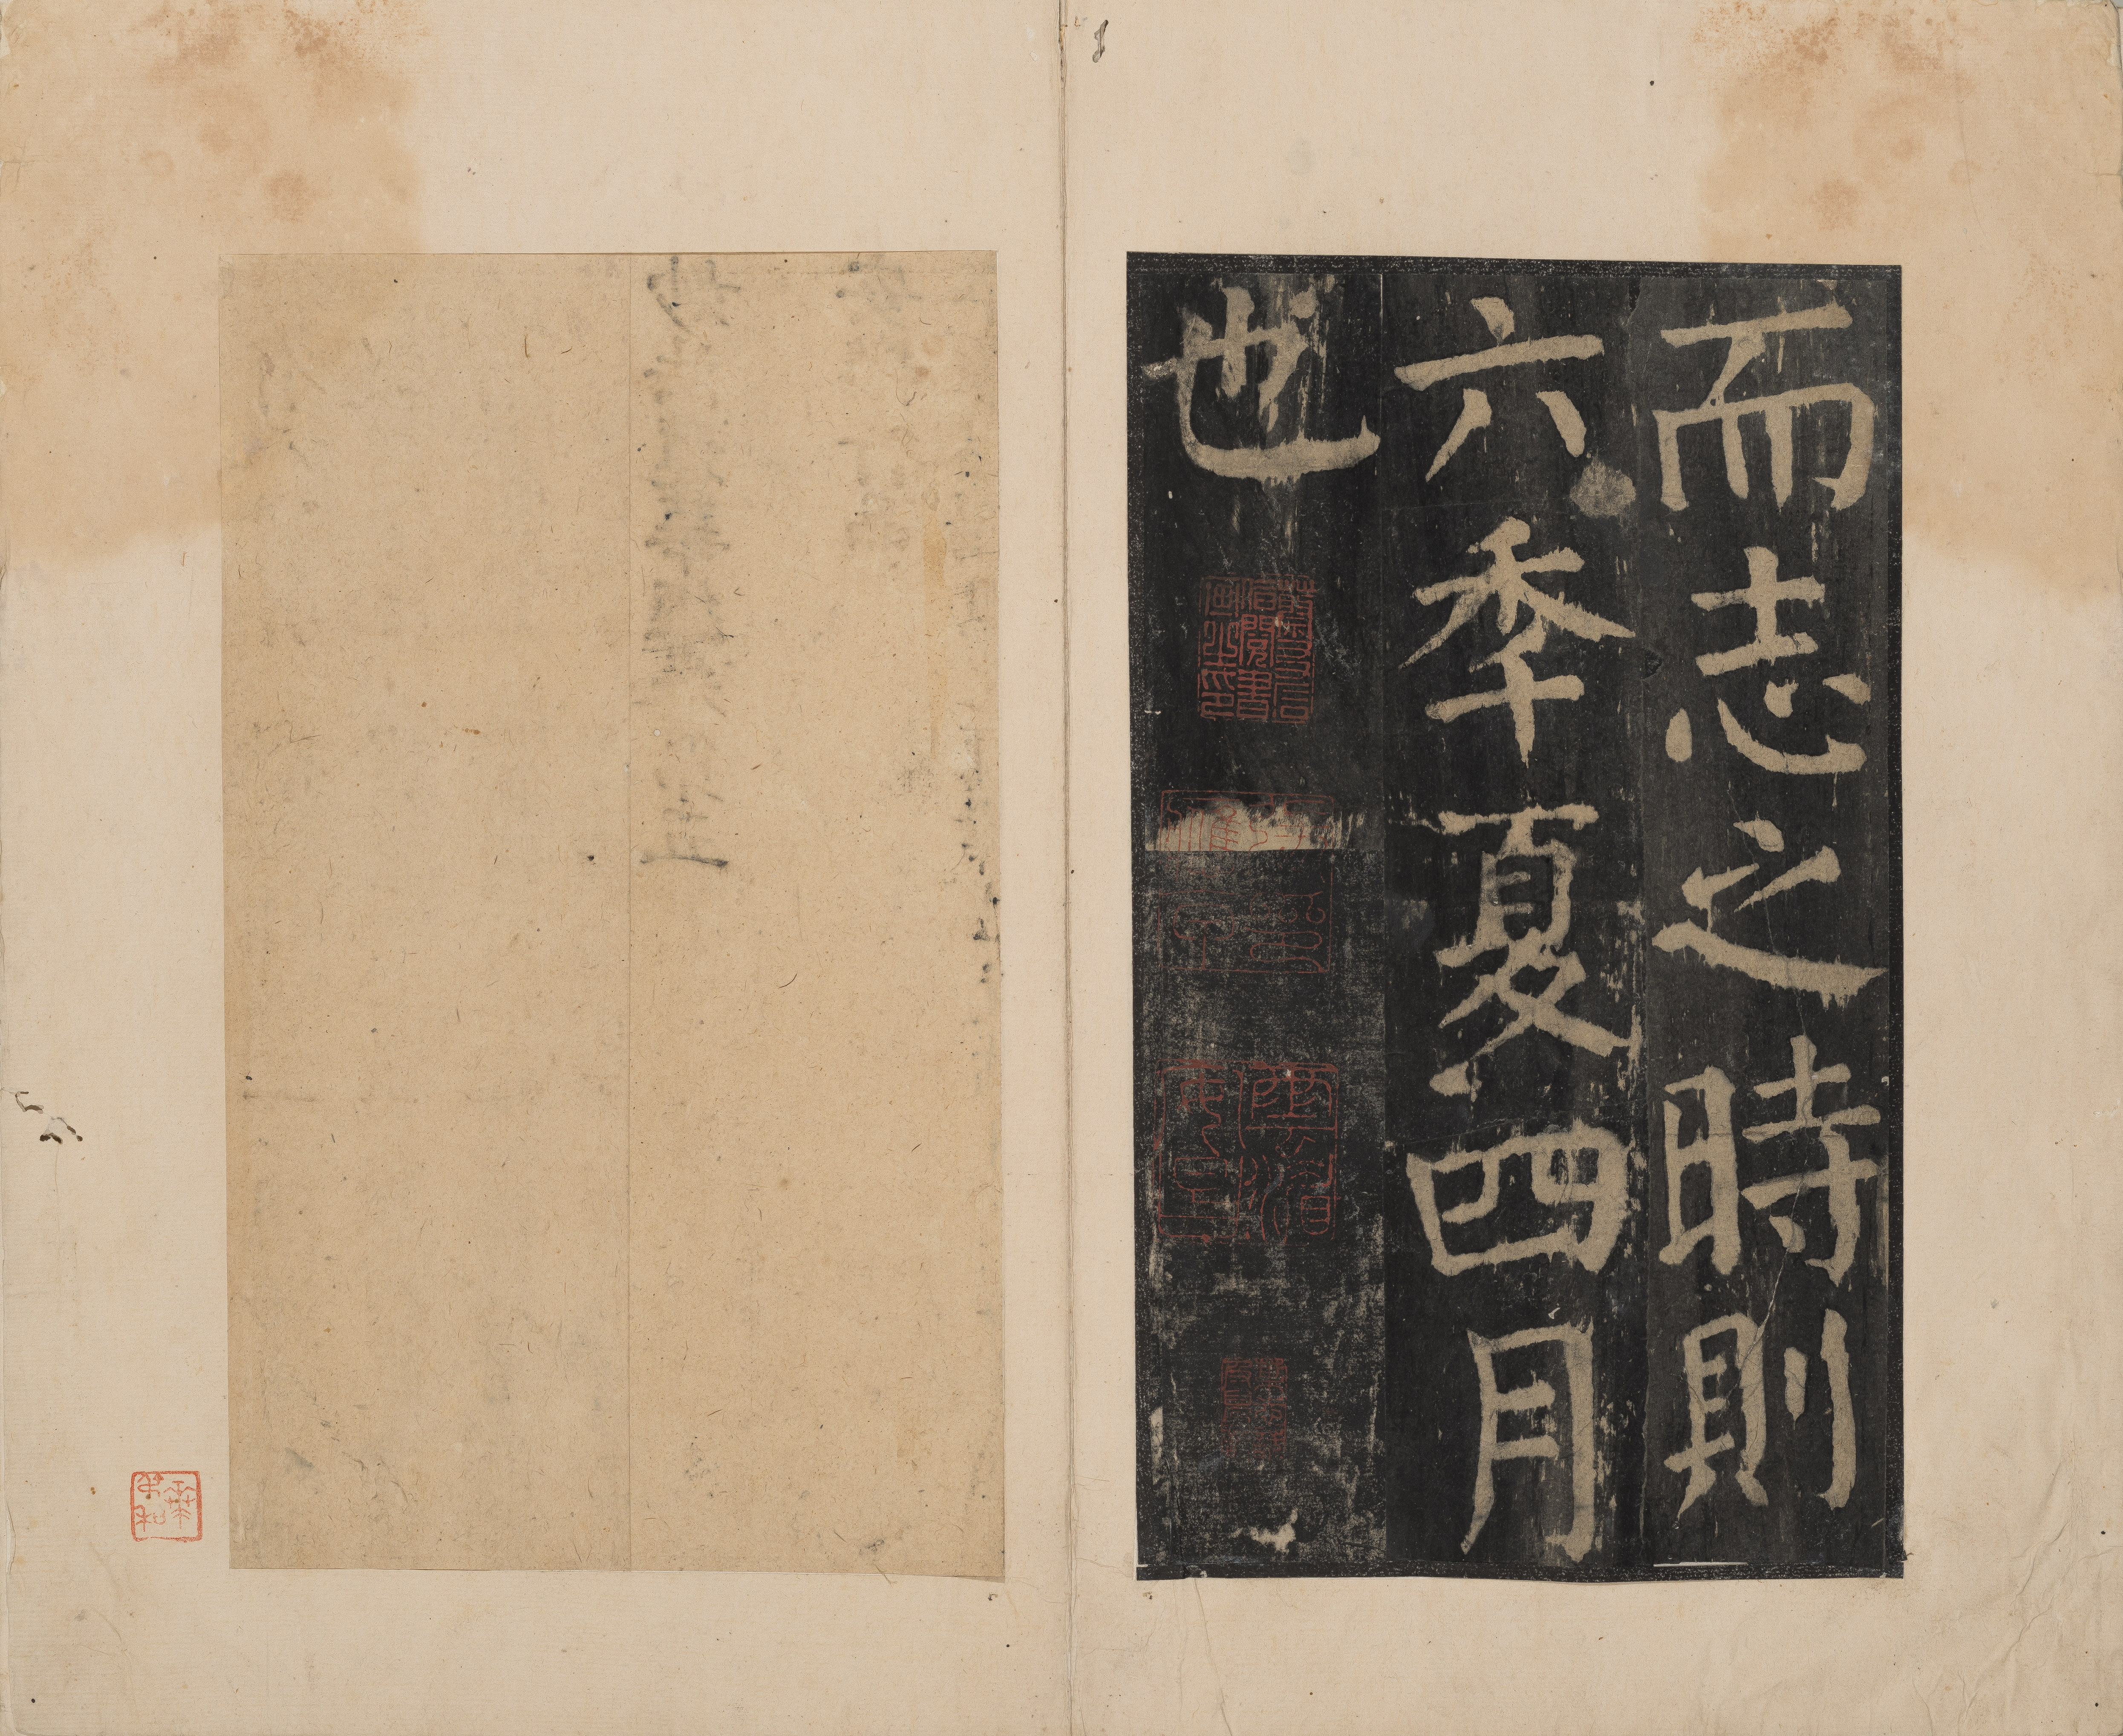 而志之時則
六季夏四月
也